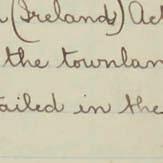 (Ireland) Act
the townlan
ailed in the